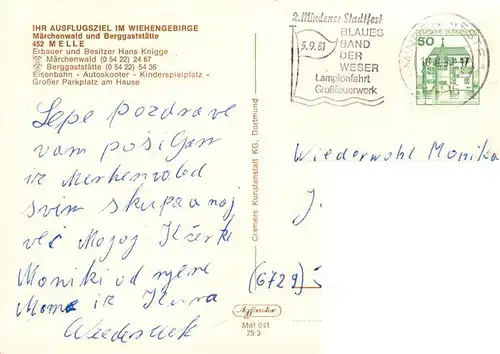 IHR AUSFLUGSZIEL IM WIEHENGEBIRGE
Märchenwald und Berggaststätte
452 MELLE
Erbauer und Besitzer Hans Knigge
Märchenwald (0 54 22) 24 67
Berggaststätte (0 54 22) 54 36
Eisenbahn - Autoskooter - Kinderspielplatz -
Großer Parkplatz am Hause
2. Mindener Stadtfest
5.9.81
BLAUES
BAND
DER
WESER
Lampionfahrt
Großfeuerwerk
DEUTSCHE BUNDESPOST
50
Lepe Pozdrave
vam posilgam
iz Merhenvold
svim skupa
već Mojoj Kćerki
Moniki od njene
Mome iz
Cramers Kunstanstalt KG, Dortmund
Wiederwohl Monika
J.
(6729)
Mel 041
75 3